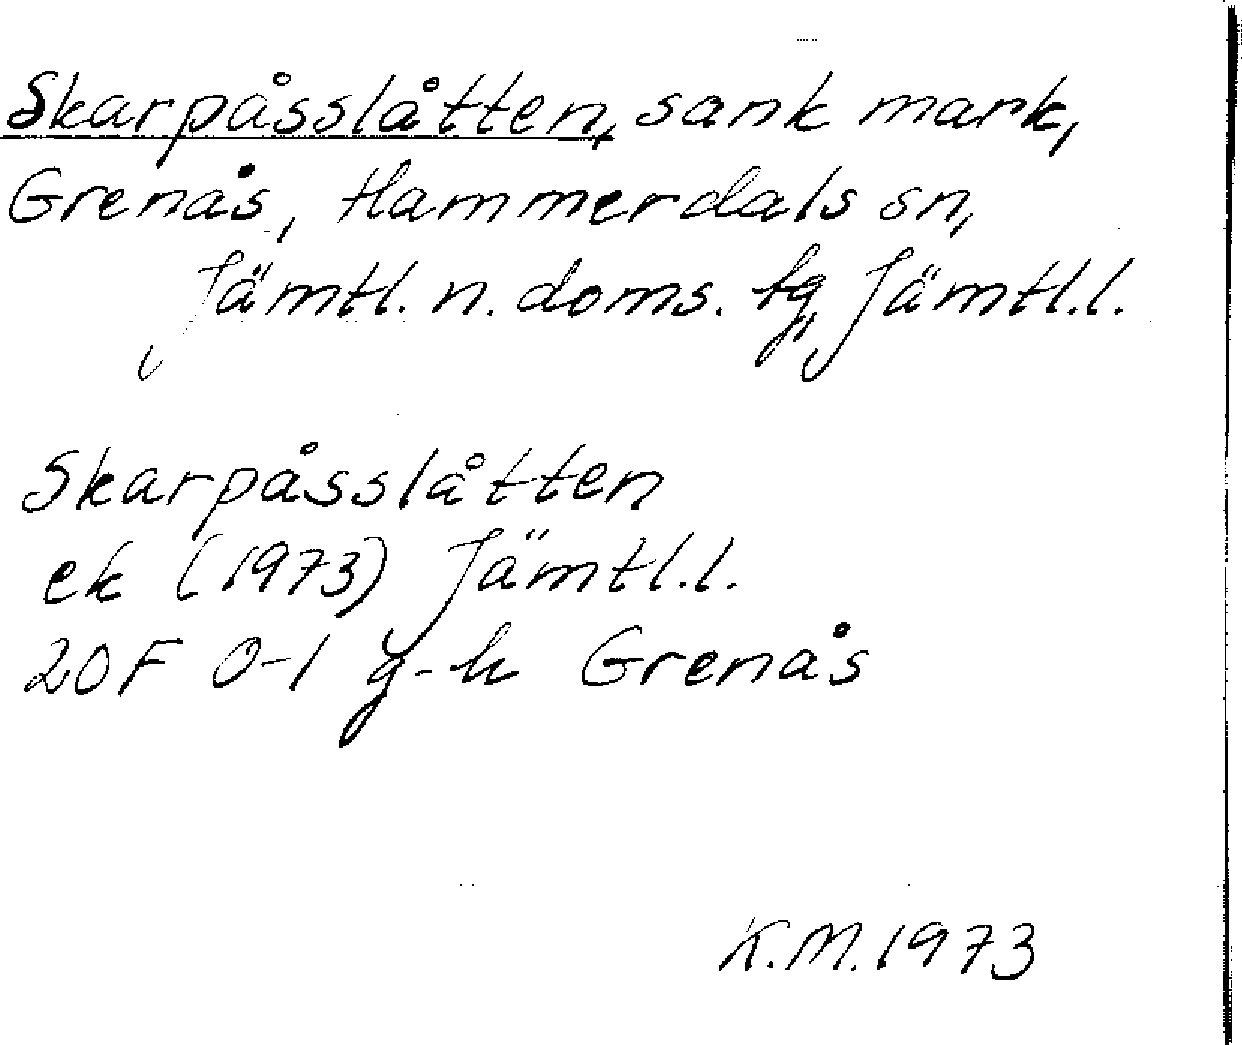 Skarpåsslåtten, sank mark,
Grenås, Hammerdals sn,
Jämtl. n. doms. tg, Jämtl.l.
Skarpåsslåtten
ek (1973) Jämtl.l.
20F 0-1 g-h Grenås
K.M. 1973